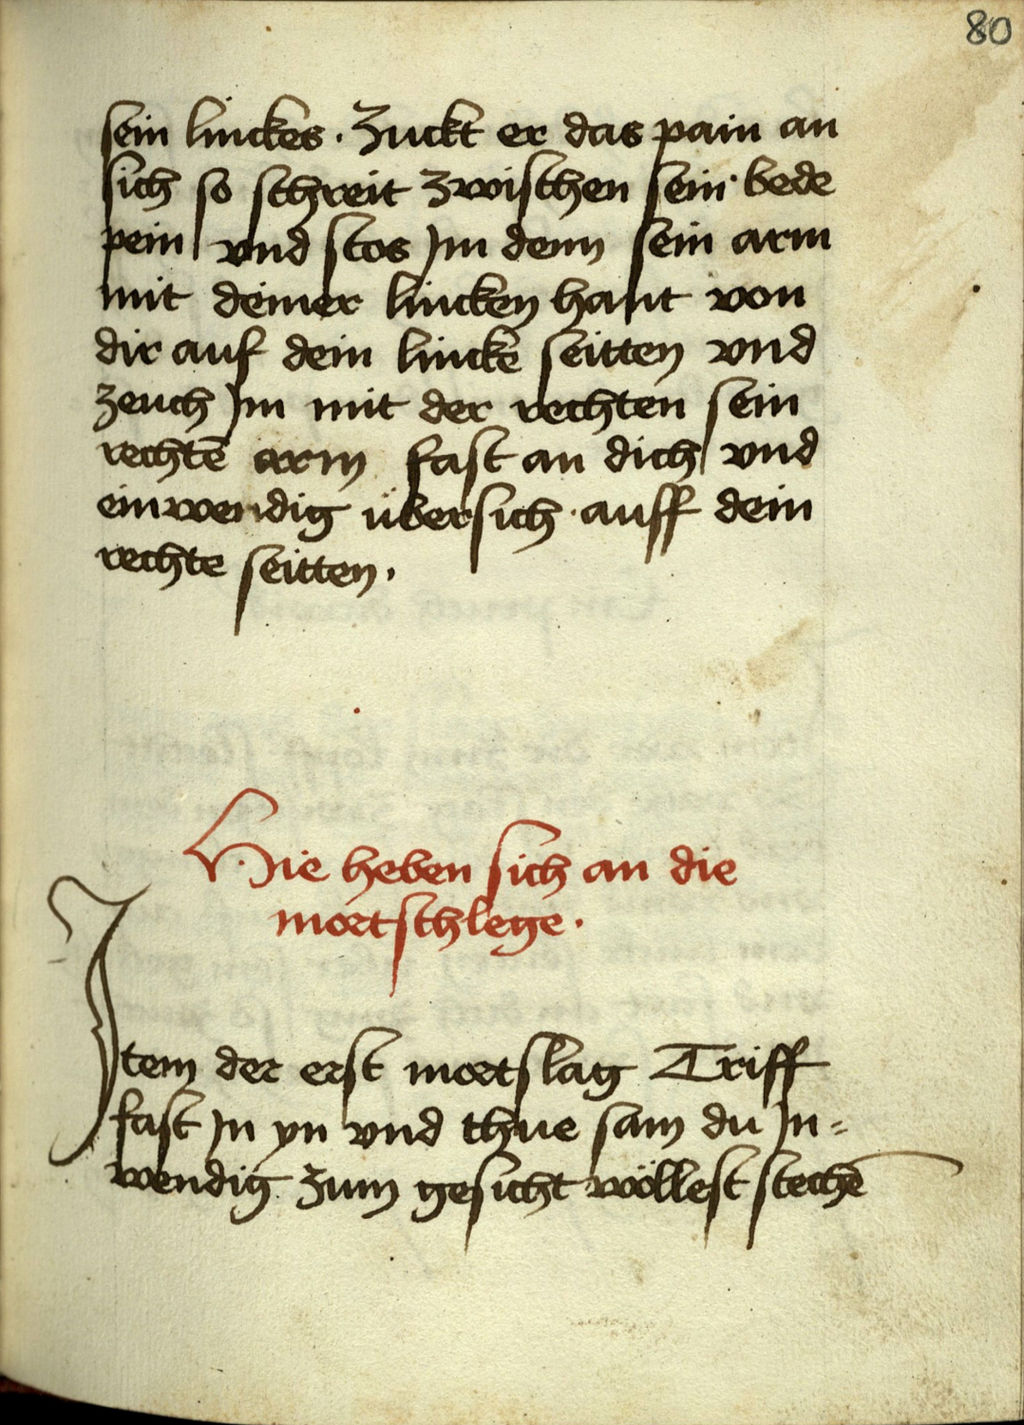 80
sein linckes · Zuckt er das pain an
sich so schreit zwischen sein bede
pein vnd stos Jm denn sein arm
mit deiner lincken hant von
dir auf dein lincke seitten vnd
zeuch Jm mit der rechten sein
rechtē arm fast an dich vnd
einwendig übersich auff dein
rechte seitten ·
Hie heben sich an die
mortschlege ·
Item der erst mortslag Triff
fast Jn yn vnd thue sam du Jn=
wendig zum gesicht wöllest stechē